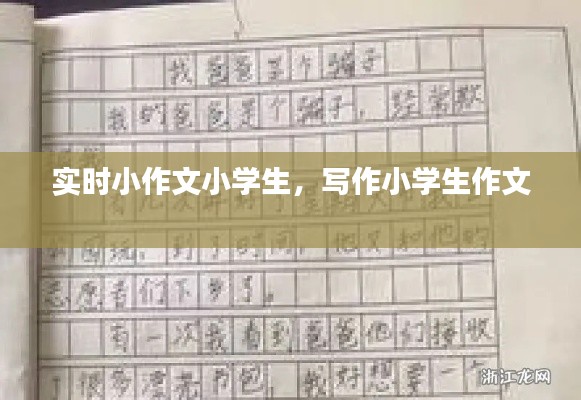 我爸爸是个骗子
我的爸爸是个骗子，经常欺
实时小作文小学生，写作小学生作文
公园玩，到了时间，他又和他的
志愿者们下乡了。
有一次我看到爸爸他们接收
了很多漂亮书包，我好想要一个
浙江龙网